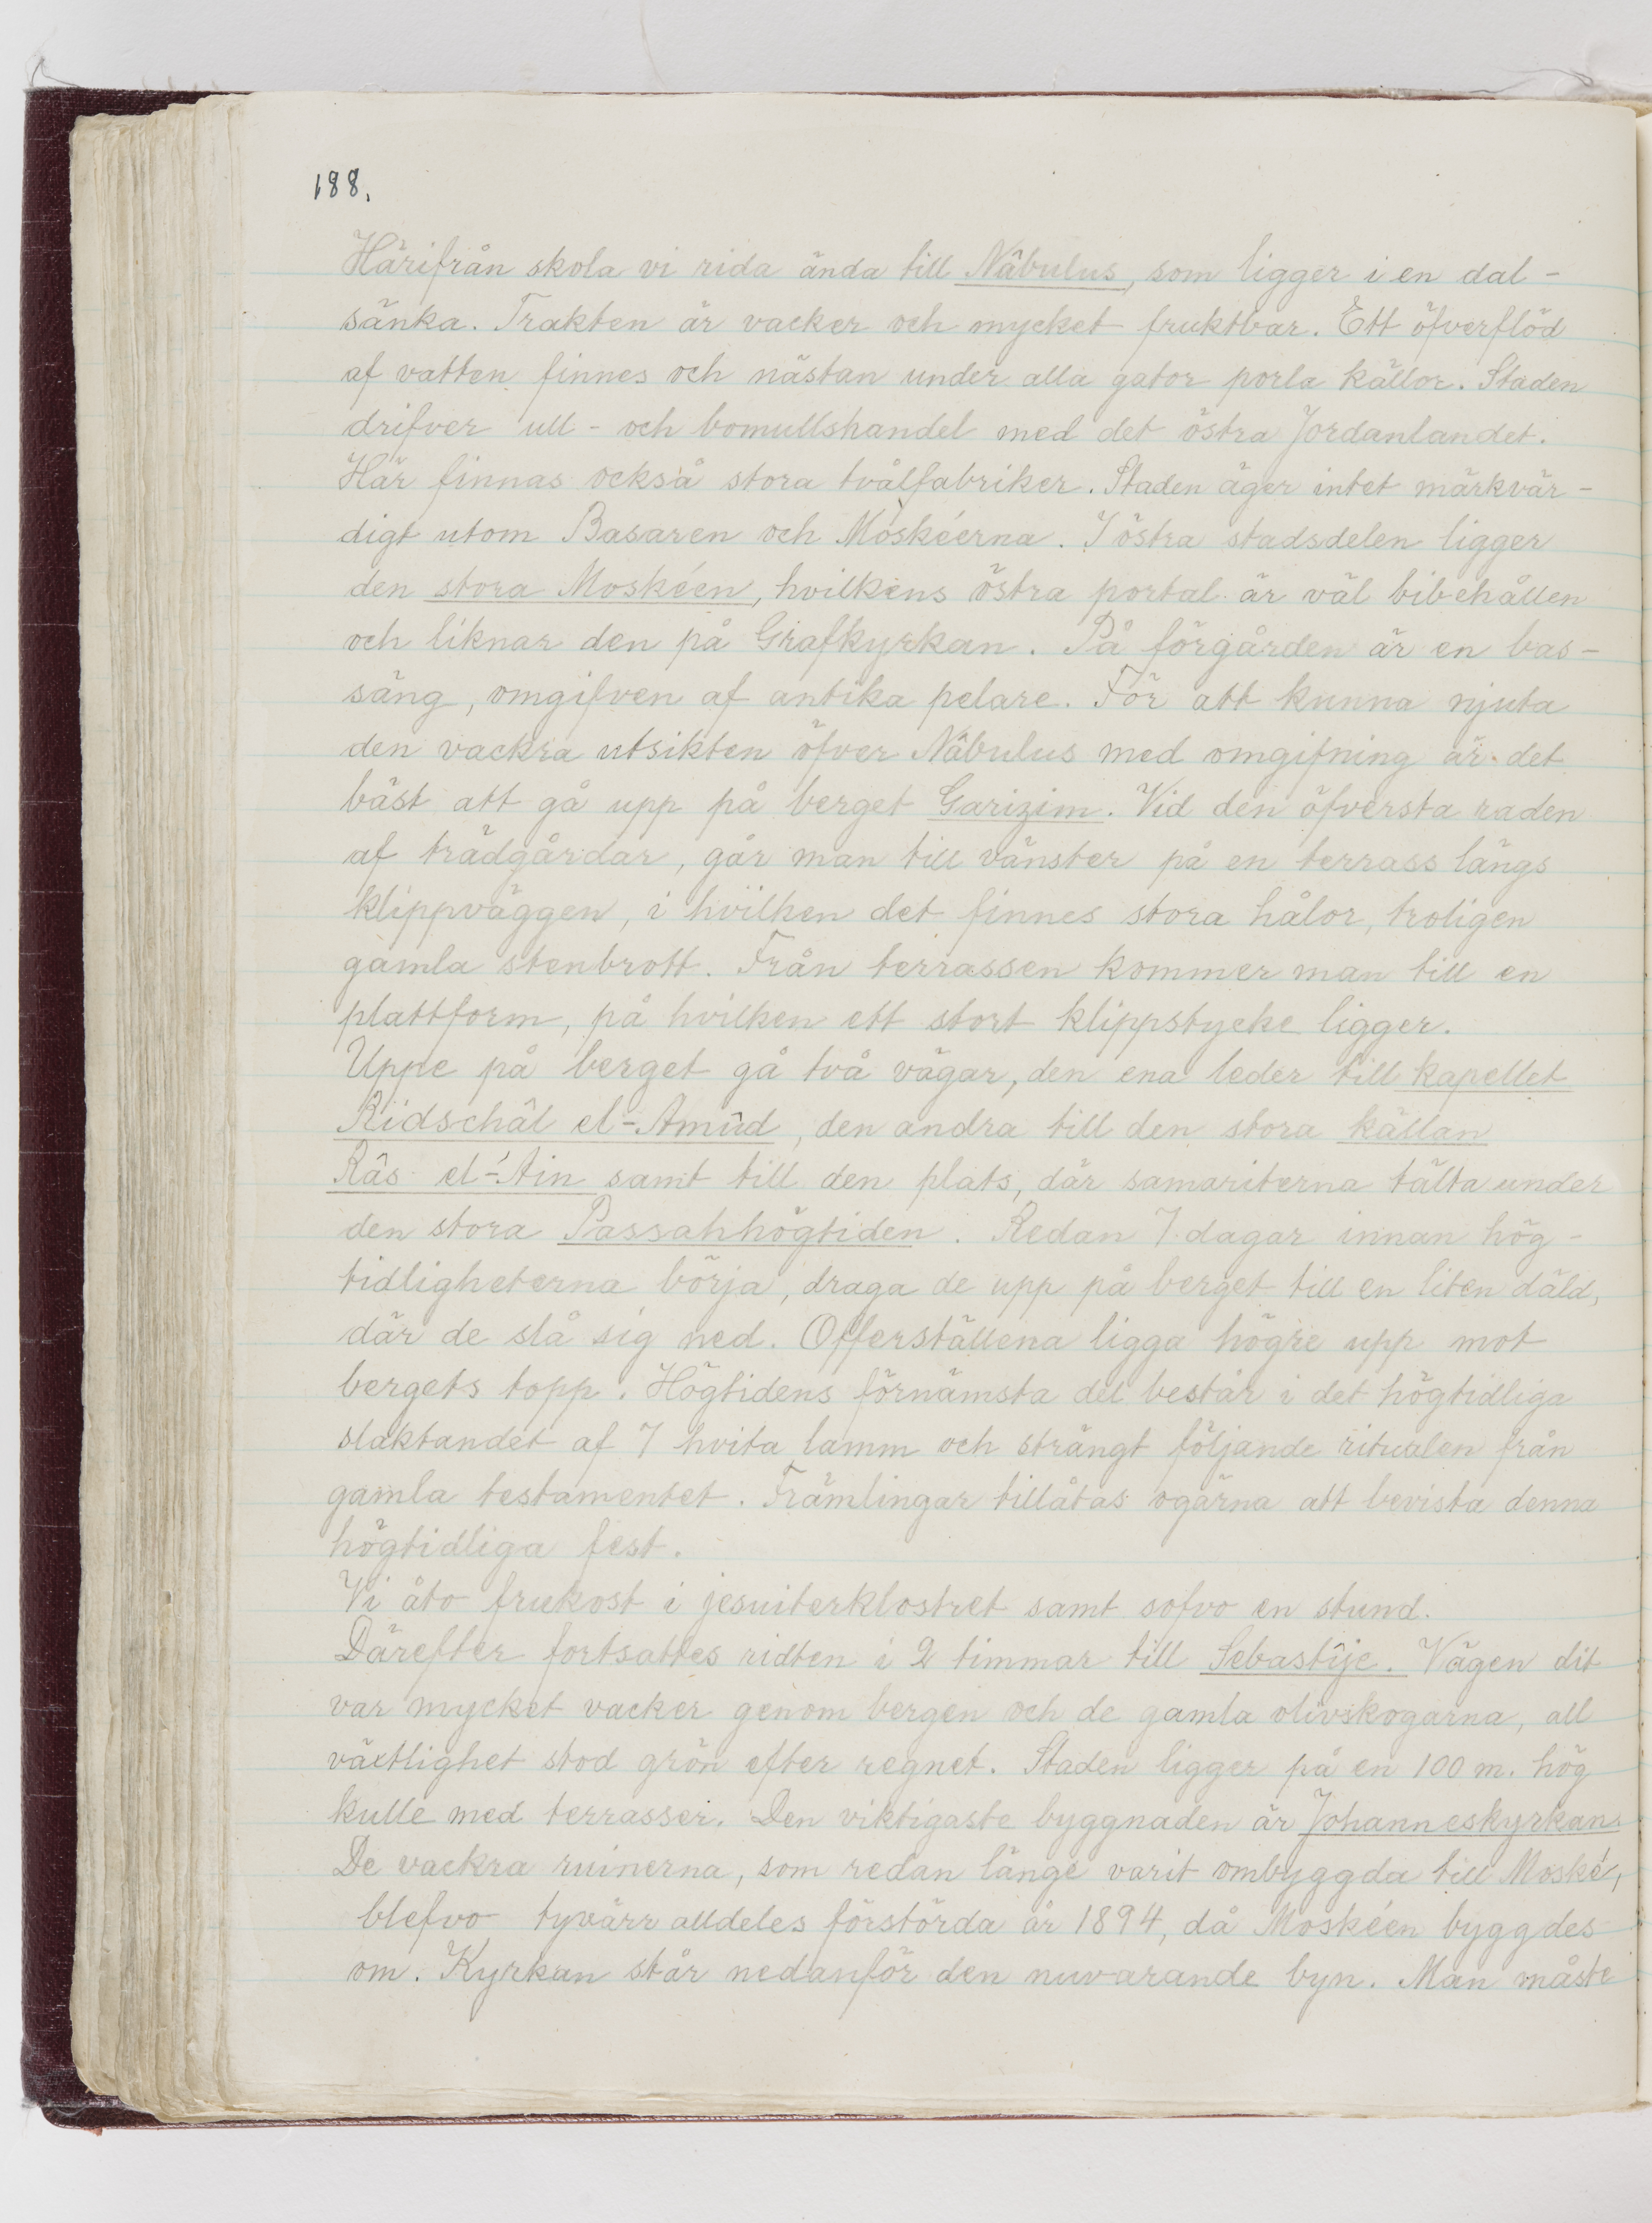 188.
Härifrån skola vi rida ända till Nâbulus, som ligger i en dal-
sänka. Trakten är vacker och mycket fruktbar. Ett öfverflöd
af vatten finnes och nästan under alla gator porla källor. Staden
drifver ull- och bomullshandel med det östra Jordanlandet.
Här finnas också stora tvålfabriker. Staden äger intet märkvär-
digt utom Basaren och Moskéerna. I östra stadsdelen ligger
den stora Moskéen, hvilkens östra portal är väl bibehållen
och liknar den på Grafkyrkan. På förgården är en bas-
säng, omgifven af antika pelare. För att kunna njuta
den vackra utsikten öfver Nâbulus med omgifning är det
bäst att gå upp på berget Garizim. Vid den öfversta raden
af trädgårdar, går man till vänster på en terrass längs
klippväggen, i hvilken det finnes stora hålor, troligen
gamla stenbrott. Från terrassen kommer man till en
plattform, på hvilken ett stort klippstycke ligger.
Uppe på berget gå två vägar, den ena leder till kapellet
Ridschâl el-Amûd, den andra till den stora källan
Râs el-'Ain samt till den plats, där samariterna tälta under
den stora Passahhögtiden. Redan 7 dagar innan hög-
tidligheterna börja, draga de upp på berget till en liten däld,
där de slå sig ned. Offerställena ligga högre upp mot
bergets topp. Högtidens förnämsta del består i det högtidliga
slaktandet af 7 hvita lamm och strängt följande ritualen från
gamla testamentet. Främlingar tillåtas ogärna att bevista denna
högtidliga fest.
Vi åto frukost i jesuiterklostret samt sofvo en stund.
Därefter fortsattes ridten i 2 timmar till Sebastîje. Vägen dit
var mycket vacker genom bergen och de gamla olivskogarna, all
växtlighet stod grön efter regnet. Staden ligger på en 100 m. hög
kulle med terrasser. Den viktigaste byggnaden är Johanneskyrkan.
De vackra ruinerna, som redan länge varit ombyggda till Moské,
blefvo tyvärr alldeles förstörda år 1894, då Moskéen byggdes
om. Kyrkan står nedanför den nuvarande byn. Man måste